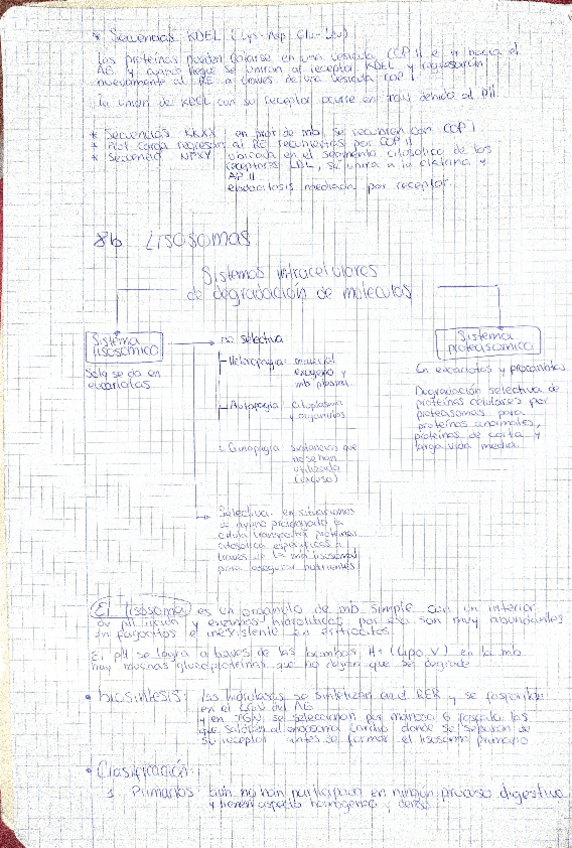 * Secuencias KDEL (Lys-Asp-Glu-Leu)
Las proteínas pueden aislarse en una vesícula COP II e ir hacia el
AG y cuando llegue se unirán al receptor KDEL y regresarán
nuevamente al RE a través de una vesícula COP I
la unión de KDEL con su receptor ocurre en debido al pH.
* Secuencias KKXX en prot de mb, se recubren con COP I
* Prot carga regresan al RE recubiertas por COP II
* Secuencia NPXY ubicada en el segmento citosólico de los
receptores LDL, se unirá a la clatrina y
AP II
endocitosis mediada por receptor.
8b Lisosomas
Sistemas intracelulares
de degradación de moléculas
Sistema
lisosómico
Solo se da en
eucariotas
no selectiva
Heterofagia: material
exógeno y
mb plasm
Autofagia: citoplasma
y orgánulos
Crinofagia sustancias que
no se han
utilizado
(exceso)
Selectiva: en situaciones
de ayuno prolongado la
célula transporta proteínas
citosólicas específicas a
través de la mb lisosomal
para asegurar nutrientes
Sistema
proteasómico
En eucariotas y procariotas
Degradación selectiva de
proteínas celulares por
proteasomas para
proteínas anormales,
proteínas de corta y
larga vida media.
El lisosoma es un orgánulo de mb simple con un interior
de pH ácido y enzimas hidrolíticas por eso son muy abundantes
en fagocitos e inexistente en eritrocitos
El pH se logra a través de las bombas H+ (tipo V) en la mb
hay muchas glucoproteínas que no dejan que se degrade
• biosíntesis: las hidrolasas se sintetizan en el RER y se fosforilan
en el CGN del AG
y en TGN se seleccionan por manosa 6 fosfato las
que saldrán al endosoma tardío donde se separan de
su receptor antes de formar el lisosoma primario
• Clasificación:
1. Primarios aún no han participado en ningún proceso digestivo
y tienen aspecto homogéneo y denso